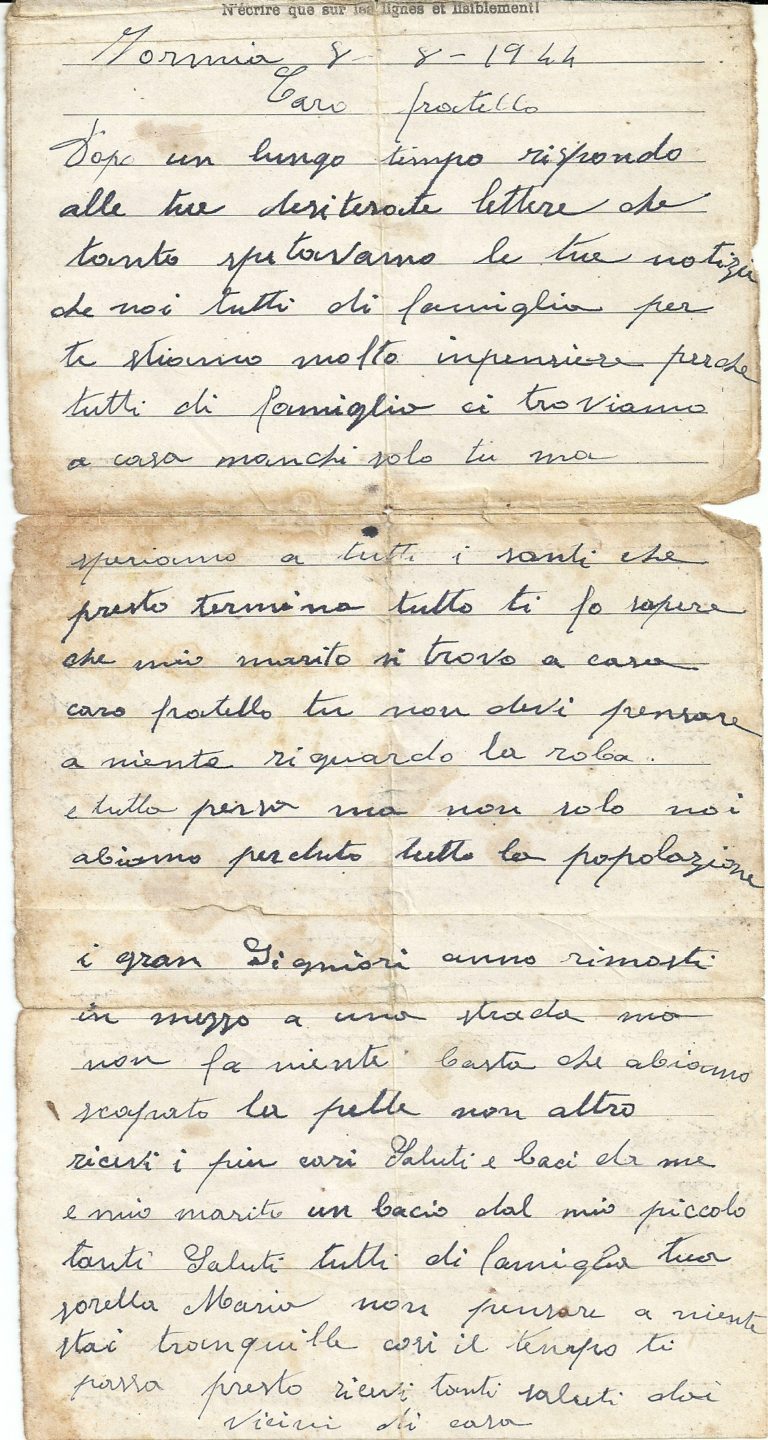 N'écrire que sur les lignes et lisiblement!
Formia 8 - 8 - 1944
Caro fratello
Dopo un lungo tempo rispondo
alle tue desiterate lettere che
tanto spetavamo le tue notizie
che noi tutti di famiglia per
te stiamo molto inpensiere perche
tutti di famiglia ci troviamo
a casa manchi solo tu ma
speriamo a tutti i santi che
presto termina tutto ti fo sapere
che mio marito si trova a casa
caro fratello tu non devi pensare
a niente riguardo la roba.
e tutta persa ma non solo noi
abiamo perduto tutto la popolazione
i gran Signiori anno rimasti
in mezzo a una strada ma
non fa niente basta che abiamo
scapato la pelle non altro
ricevi i piu cari Saluti e baci da me
e mio marito un bacio dal mio piccolo
tanti Saluti tutti di famiglia tua
sorella Maria non pensare a niente
stai tranquille cosi il tempo ti
passa presto ricevi tanti saluti dai
vicini di casa